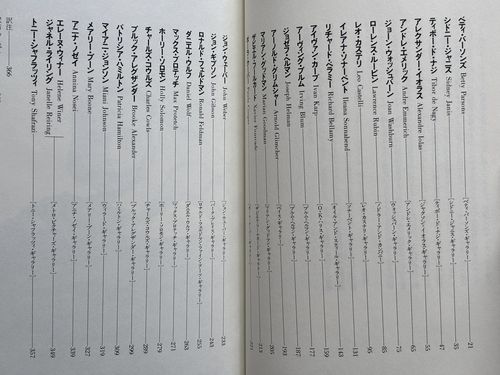 ベティ・パーソンズ Betty Parsons [ベティ・パーソンズ・ギャラリー] 21
シドニー・ジャニス Sidney Janis [シドニー・ジャニス・ギャラリー] 35
ティボー・ド・ナジ Tibor de Nagy [ティボー・ド・ナジ・ギャラリー] 47
アレクサンダー・イオラス Alexandre Iolas [ジャクソン・イオラス・ギャラリー] 55
アンドレ・エメリック Andre Emmerich [アンドレ・エメリック・ギャラリー] 65
ジョーン・ウォッシュバーン Joan Washburn [ウォッシュバーン・ギャラリー] 75
ローレンス・ルービン Lawrence Rubin 85
レオ・カステリ Leo Castelli [レオ・カステリ・ギャラリー] 95
イレアナ・ソナーベント Ileana Sonnabend [ソナーベント・ギャラリー] 131
リチャード・ベラミー Richard Bellamy 143
アイヴァン・カープ Ivan Karp [O・K・ハリス・ギャラリー] 159
アーヴィング・ブルム Irving Blum 177
ジョゼフ・ヘルマン Joseph Helman 187
アーノルド・グリムシャー Arnold Glimcher 193
マリアン・グッドマン Marian Goodman 205
213
221
ジョン・ウェーバー John Weber [ジョン・ウェーバー・ギャラリー] 233
ジョン・ギブソン John Gibson [ジョン・ギブソン・ギャラリー] 243
ロナルド・フェルドマン Ronald Feldman 255
ダニエル・ウルフ Daniel Wolf [ダニエル・ウルフ・ギャラリー] 263
マックス・プロテッチ Max Protech [マックス・プロテッチ・ギャラリー] 271
ホーリー・ソロモン Holly Solomon [ホーリー・ソロモン・ギャラリー] 279
チャールズ・コウルズ Charles Cowls [チャールズ・コウルズ・ギャラリー] 289
ブルック・アレグザンダー Brooke Alexander 299
パトリシア・ハミルトン Patricia Hamilton [ハミルトン・ギャラリー] 309
マイアニ・ジョンソン Miani Johnson [ウィラード・ギャラリー] 319
メアリー・ブーン Mary Boone [メアリー・ブーン・ギャラリー] 327
アニナ・ノセイ Annina Nosei [アニナ・ノセイ・ギャラリー] 339
エレーヌ・ウィナー Helene Winer
ジャネル・ライリング Janelle Reiring [メトロ・ピクチャーズ・ギャラリー] 349
トニー・シャフラッツィ Tony Shafrazi [トニー・シャフラッツィ・ギャラリー] 357
訳注 366